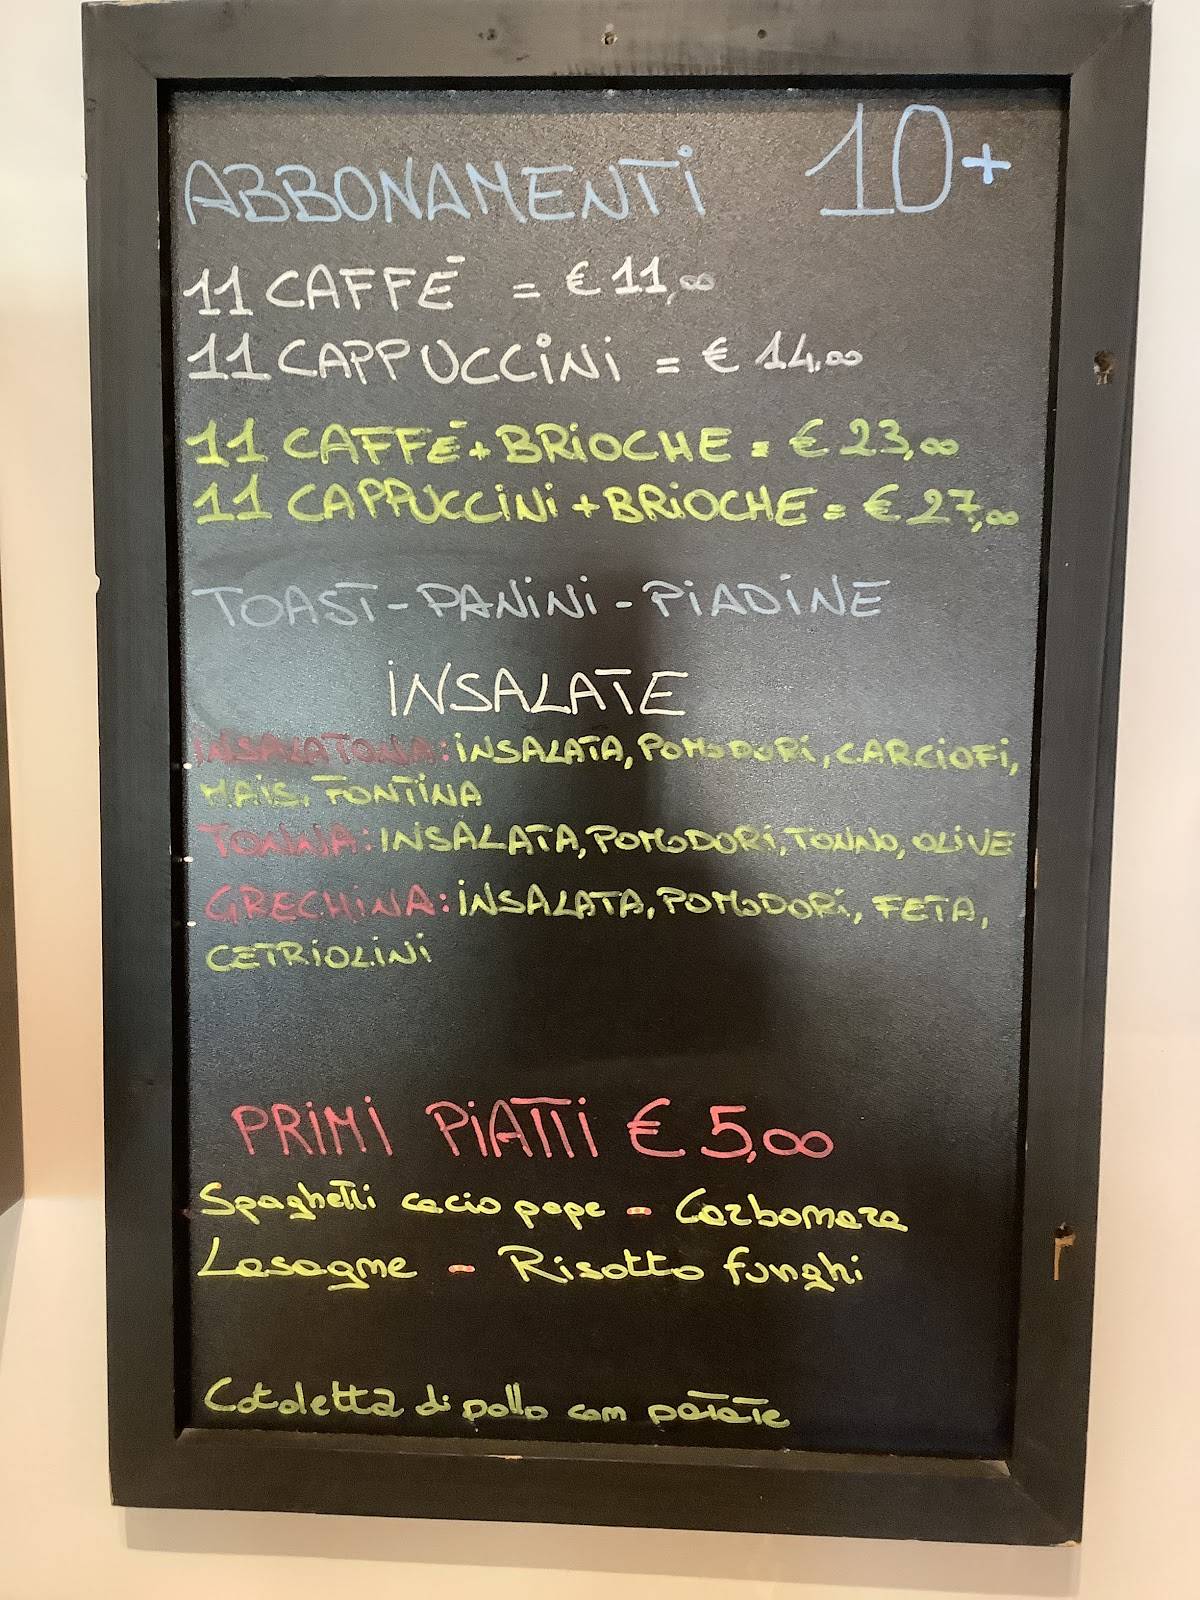 ABBONAMENTI 10+
11 CAFFÈ = € 11,00
11 CAPPUCCINI = € 14,00
11 CAFFÈ + BRIOCHE = € 23,00
11 CAPPUCCINI + BRIOCHE = € 27,00
TOAST - PANINI - PIADINE
INSALATE
INSALATONA: INSALATA, POMODORI, CARCIOFI,
MAIS, FONTINA
TONNA: INSALATA, POMODORI, TONNO, OLIVE
GRECHINA: INSALATA, POMODORI, FETA,
CETRIOLINI
PRIMI PIATTI € 5,00
Spaghetti cacio pepe - Carbonara
Lasagne - Risotto funghi
Cotoletta di pollo con patate